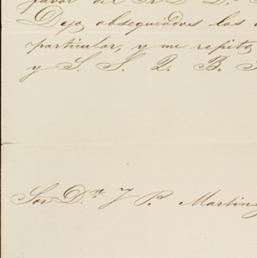 favor del Sr D. D.
Dejo obsequiados los
particular, y me repito
y S. S. Q. B.
Sor Dn J P. Martin